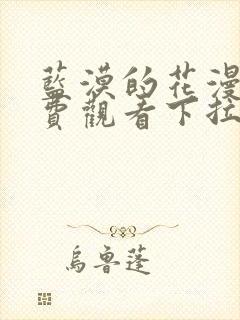 藍漠的花漫
費觀看下拉
烏魯蓬